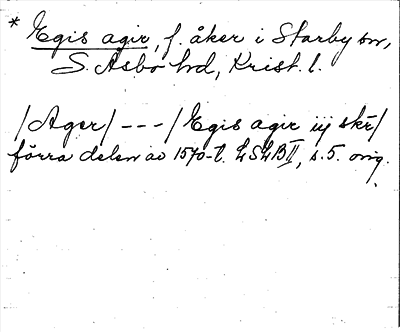 * Egis agir, f. åker i Starby sn,
S. Åsbo hd, Krist. l.
/Ager/ - - - /Egis agir iij skr/
förra delen av 1570-t. LSLB II, s. 5. orig.